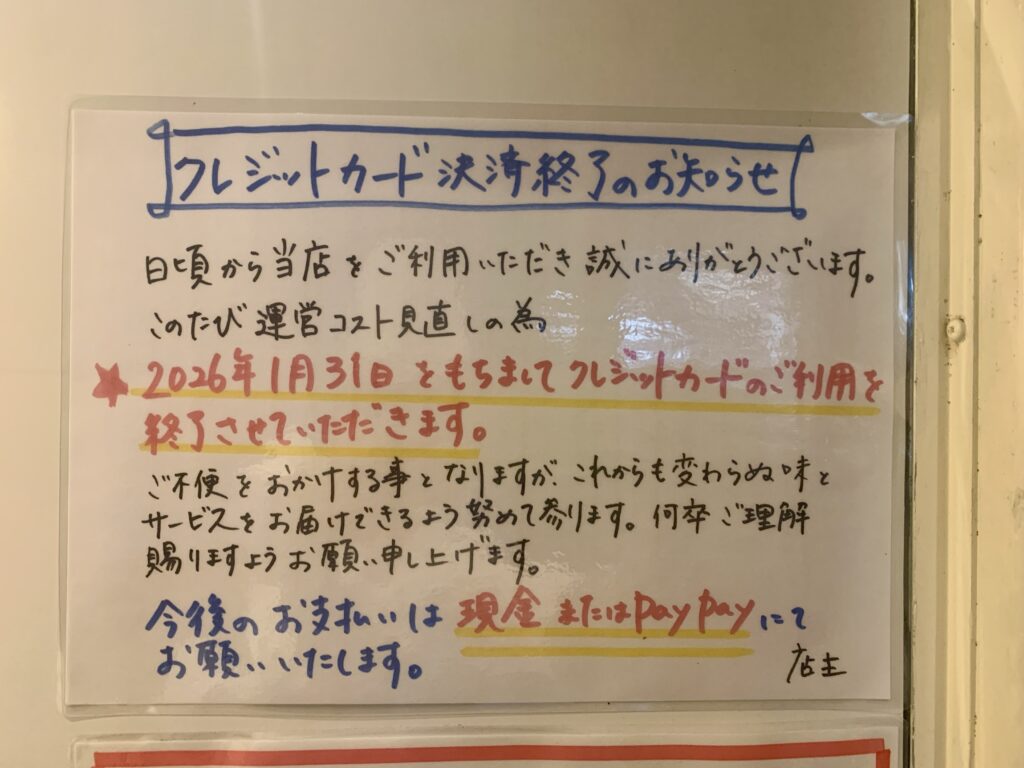 クレジットカード決済終了のお知らせ
日頃から当店をご利用いただき誠にありがとうございます。
このたび運営コスト見直しの為
★2026年1月31日をもちましてクレジットカードのご利用を
終了させていただきます。
ご不便をおかけする事となりますが、これからも変わらぬ味と
サービスをお届けできるよう努めて参ります。何卒ご理解
賜りますようお願い申し上げます。
今後のお支払いは現金またはpaypayにて
お願いいたします。
店主